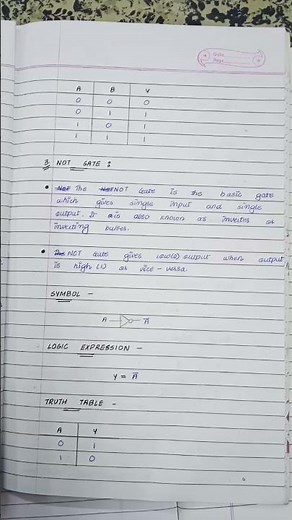 Date
Page
A B Y
0 0 0
0 1 1
1 0 1
1 1 1
3. NOT GATE :
• The NOT Gate is the basic gate
which gives single input and single
output. It is also known as invertes as
inverting buffer.
• NOT Gate gives low(0) output when output
is high (1) as vice-versa.
SYMBOL -
A A̅
LOGIC EXPRESSION -
Y = A̅
TRUTH TABLE -
A Y
0 1
1 0